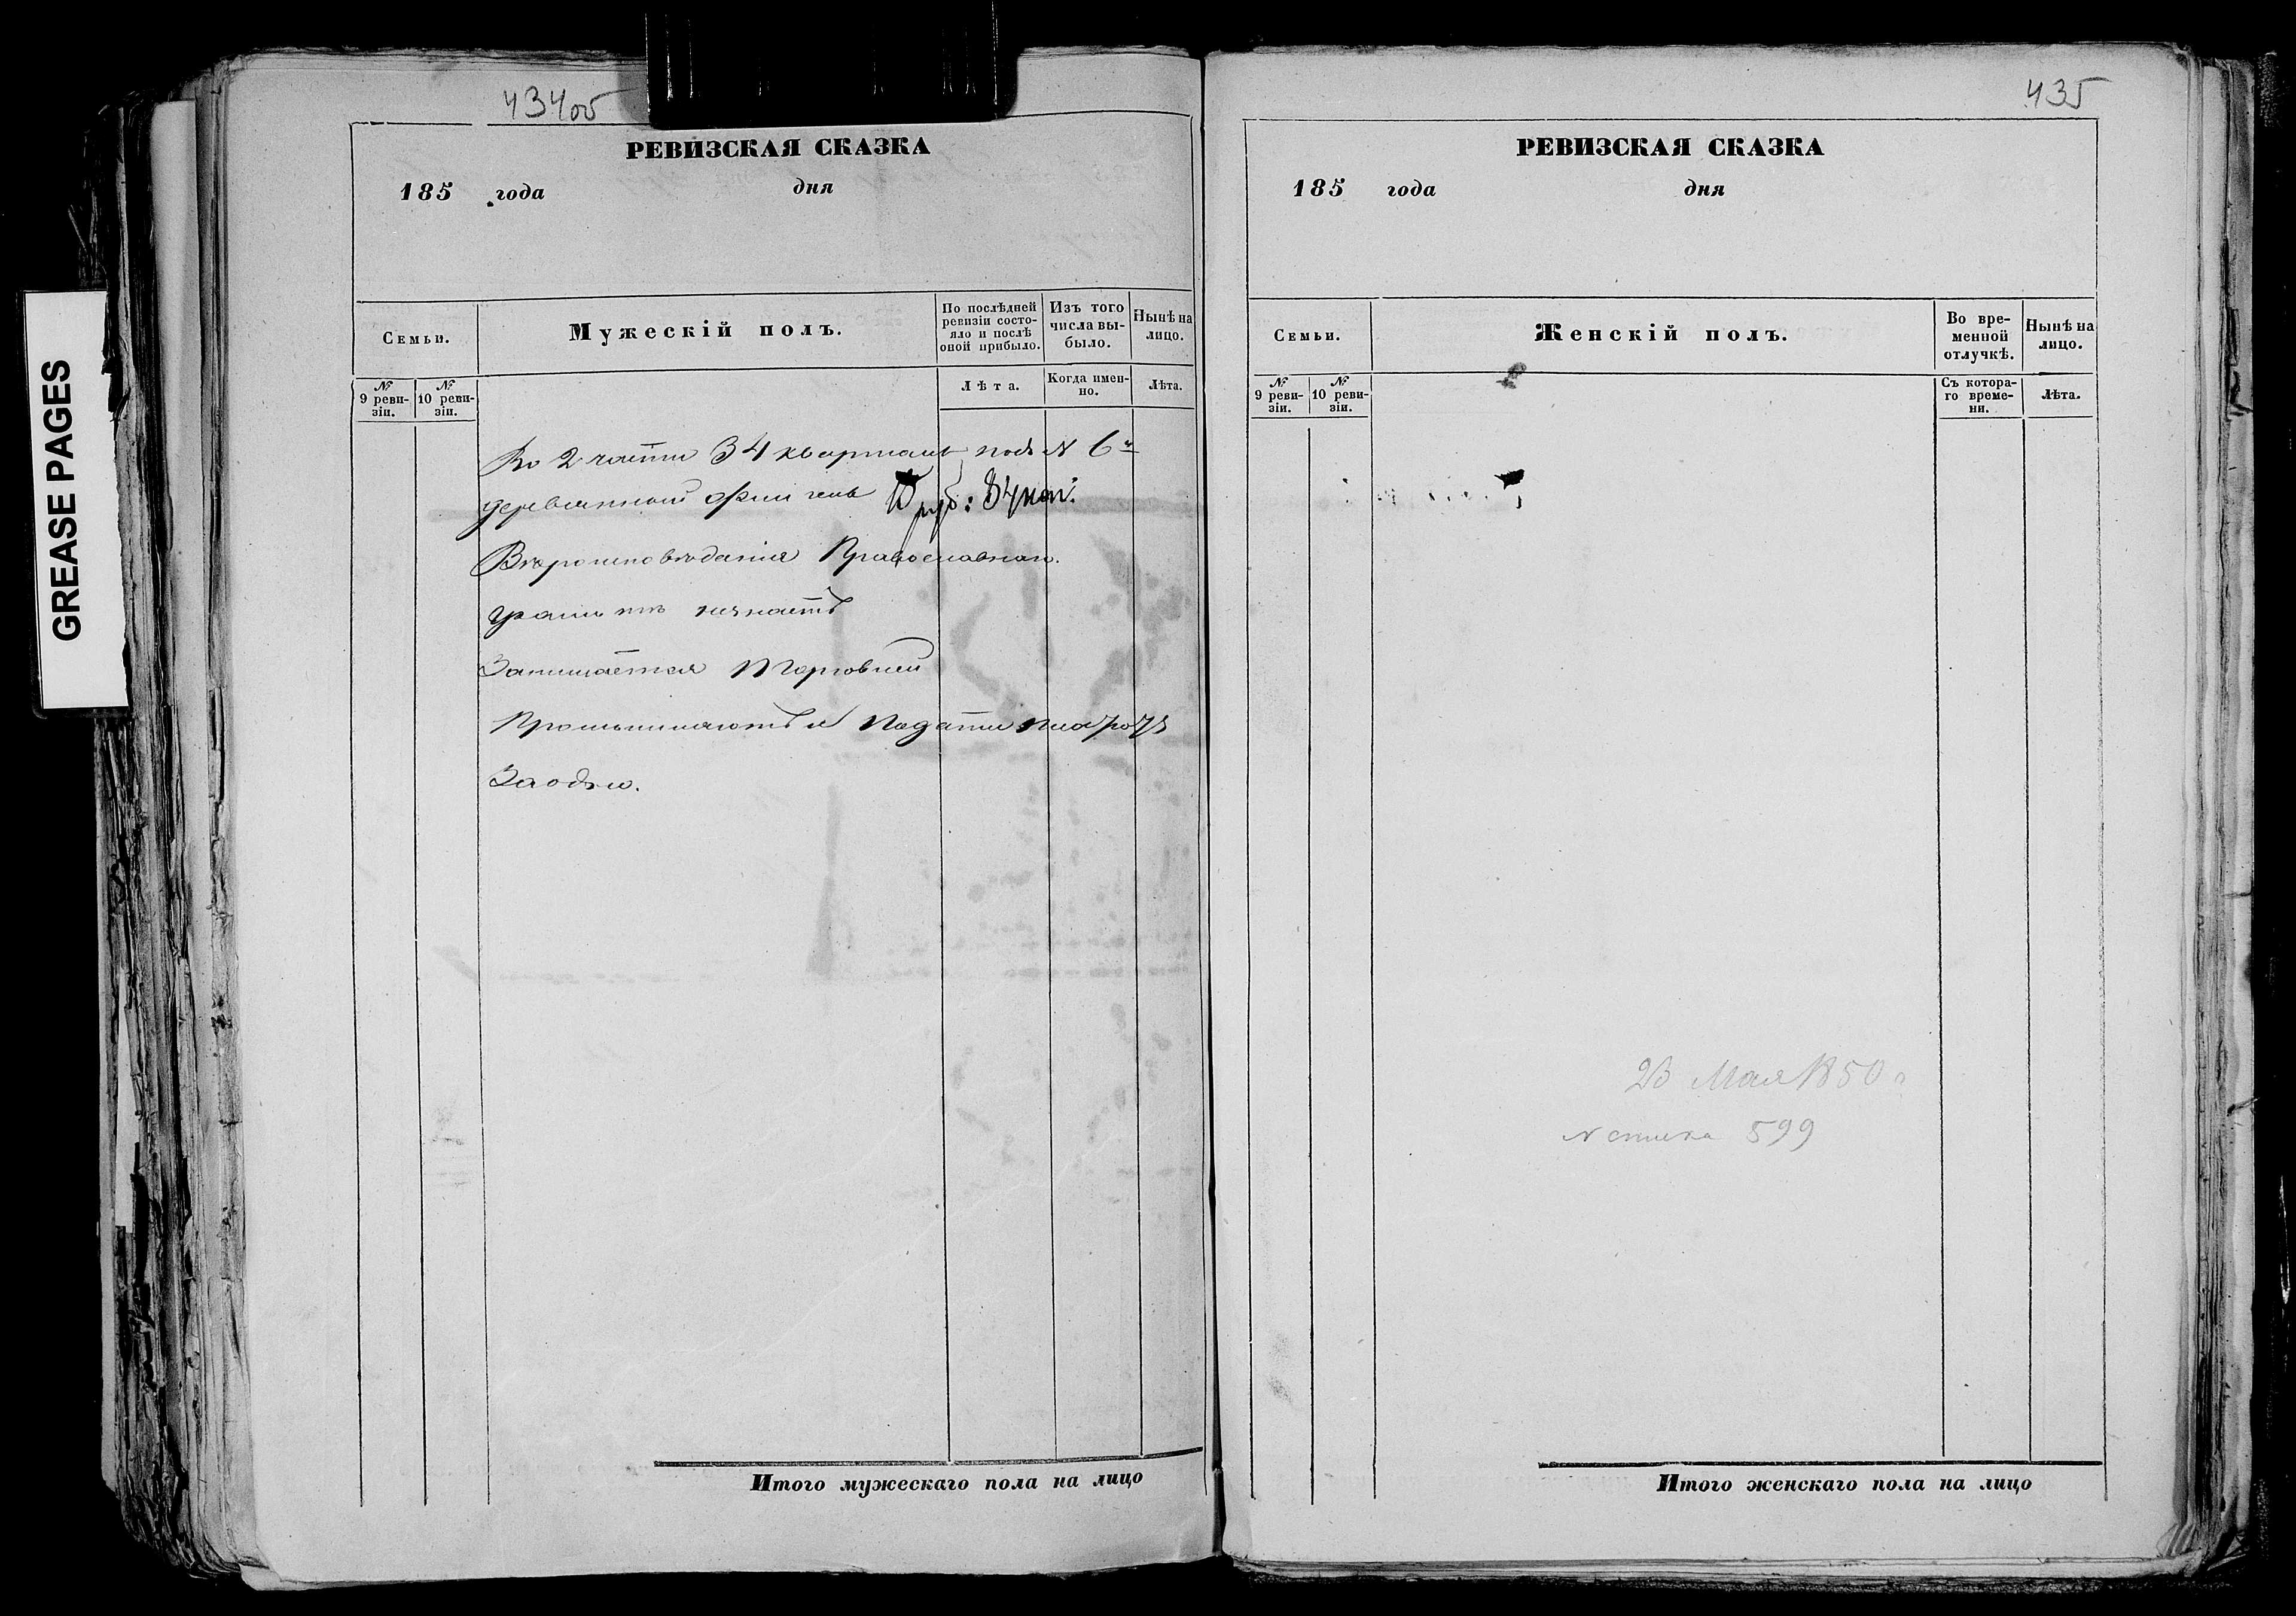 GREASE PAGES
434об
РЕВИЗСКАЯ СКАЗКА
185 года дня
Семьи.
Мужескій полъ.
По послѣдней ревизіи состояло и послѣ оной прибыло.
Изъ того числа выбыло.
Нынѣ на лицо.
№ 9 ревизіи.
№ 10 ревизіи.
Лѣта.
Когда именно.
Лѣта.
Во 2 части 34 квартала подъ № 6м
деревянный флигель руб: 84 коп:
Вѣроисповѣданія Православнаго.
грамотѣ незнаетъ
Занимается Торговлей
Подати
435
РЕВИЗСКАЯ СКАЗКА
185 года дня
Семьи.
Женскій полъ.
Во временной отлучкѣ.
Нынѣ на лицо.
№ 9 ревизіи.
№ 10 ревизіи.
Съ котораго времени.
Лѣта.
23 Мая 1850 г
599
Итого мужескаго пола на лицо
Итого женскаго пола на лицо